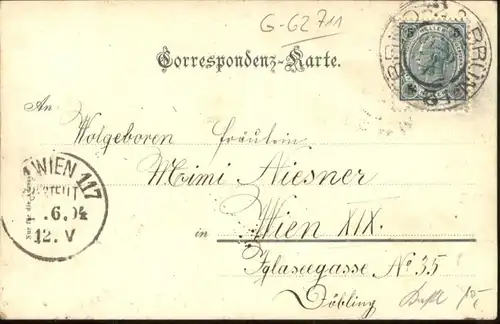 G-62711
Correspondenz-Karte.
An
Wolgeboren Fräulein
Mimi Niesner
in Wien XIX.
Iglaseegasse No 35
Döbling
WIEN 117
.6.04
12.V
BRÜNN
5